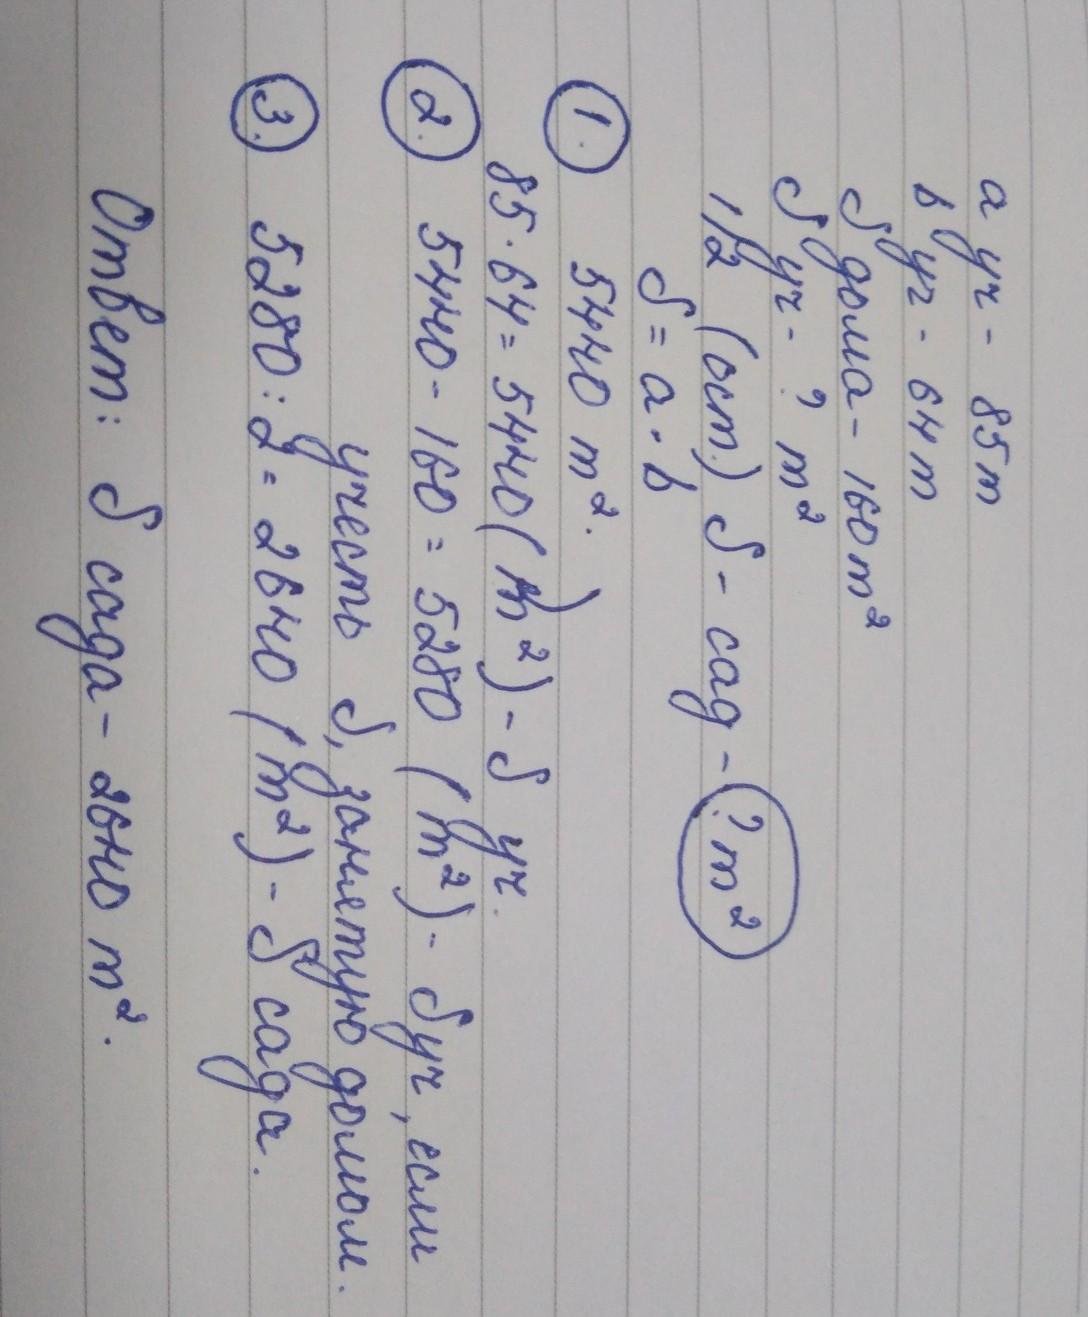 a уч - 85 m
b уч - 64 m
S дома - 160 m²
S уч - ? m²
1/2 (ост.) S - сад - ? m²
S = a · b
1. 5440 m².
85 · 64 = 5440 (m²) - S уч.
2. 5440 - 160 = 5280 (m²) - S уч, если
учесть S, занятую домом.
3. 5280 : 2 = 2640 (m²) - S сада.
Ответ: S сада - 2640 m².